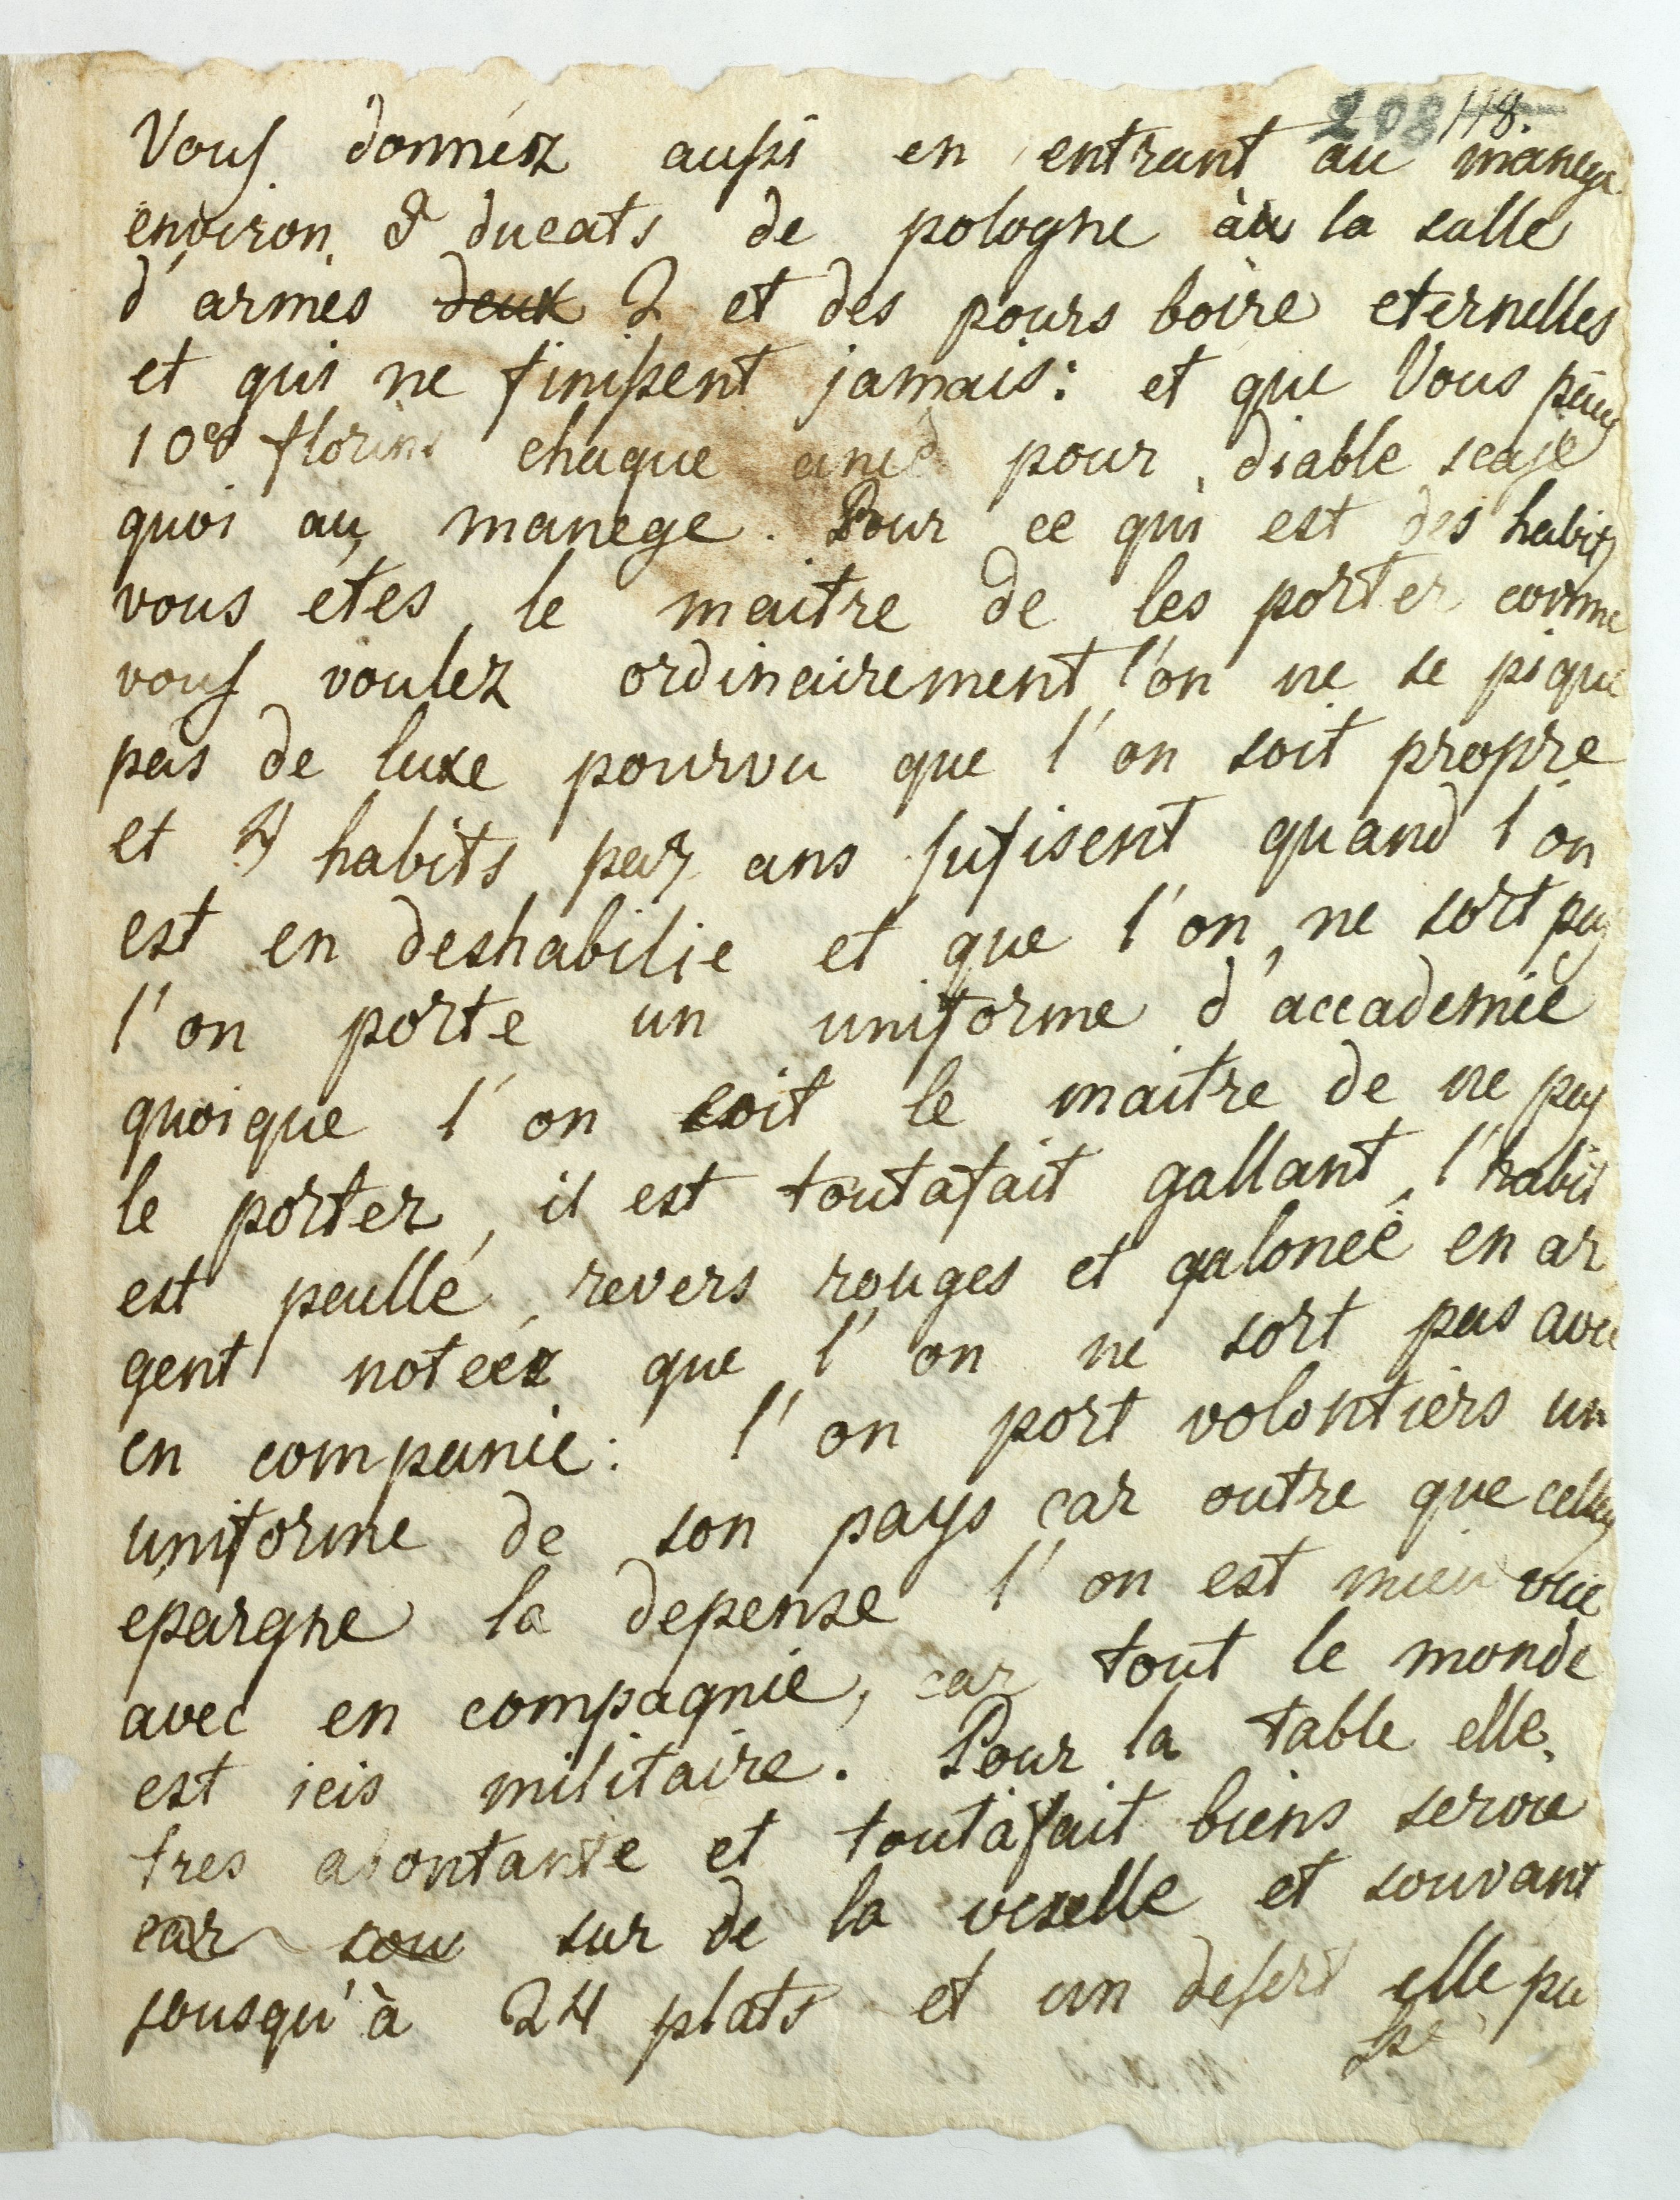 208 118.
Vous donnéz aussi en entrant au manege
environ 8 ducats de pologne àu la salle
d'armes deux 2 et des pours boire eternelles
et qui ne finissent jamais: et que Vous
100 florins chaque aneé pour diable scaje
quoi au manege. Pour ce qui est des habits
vous etes le maitre de les porter comme
vous voulez ordinairement l'on ne se pique
pas de luxe pourvu que l'on soit propre
et 4 habits par ans sufisent quand l'on
est en deshabilie et que l'on ne sort pas
l'on porte un uniforme d'accademie
quoique l'on soit le maitre de ne pas
le porter, il est toutafait gallant, l'habit
est paullé revers rouges et galoneé en ar
gent noteéz que l'on ne sort pas avec
en companie: l'on port volontiers un
uniforme de son pays car outre que cella
epargne la depense l'on est mieu vue
avec en compagnie, car tout le monde
est icis militaire. Pour la table elle
tres abontante et toutafait biens servie
car sou sur de la veselle et souvant
jousqu'à 24 plats et un desert elle pa
sse